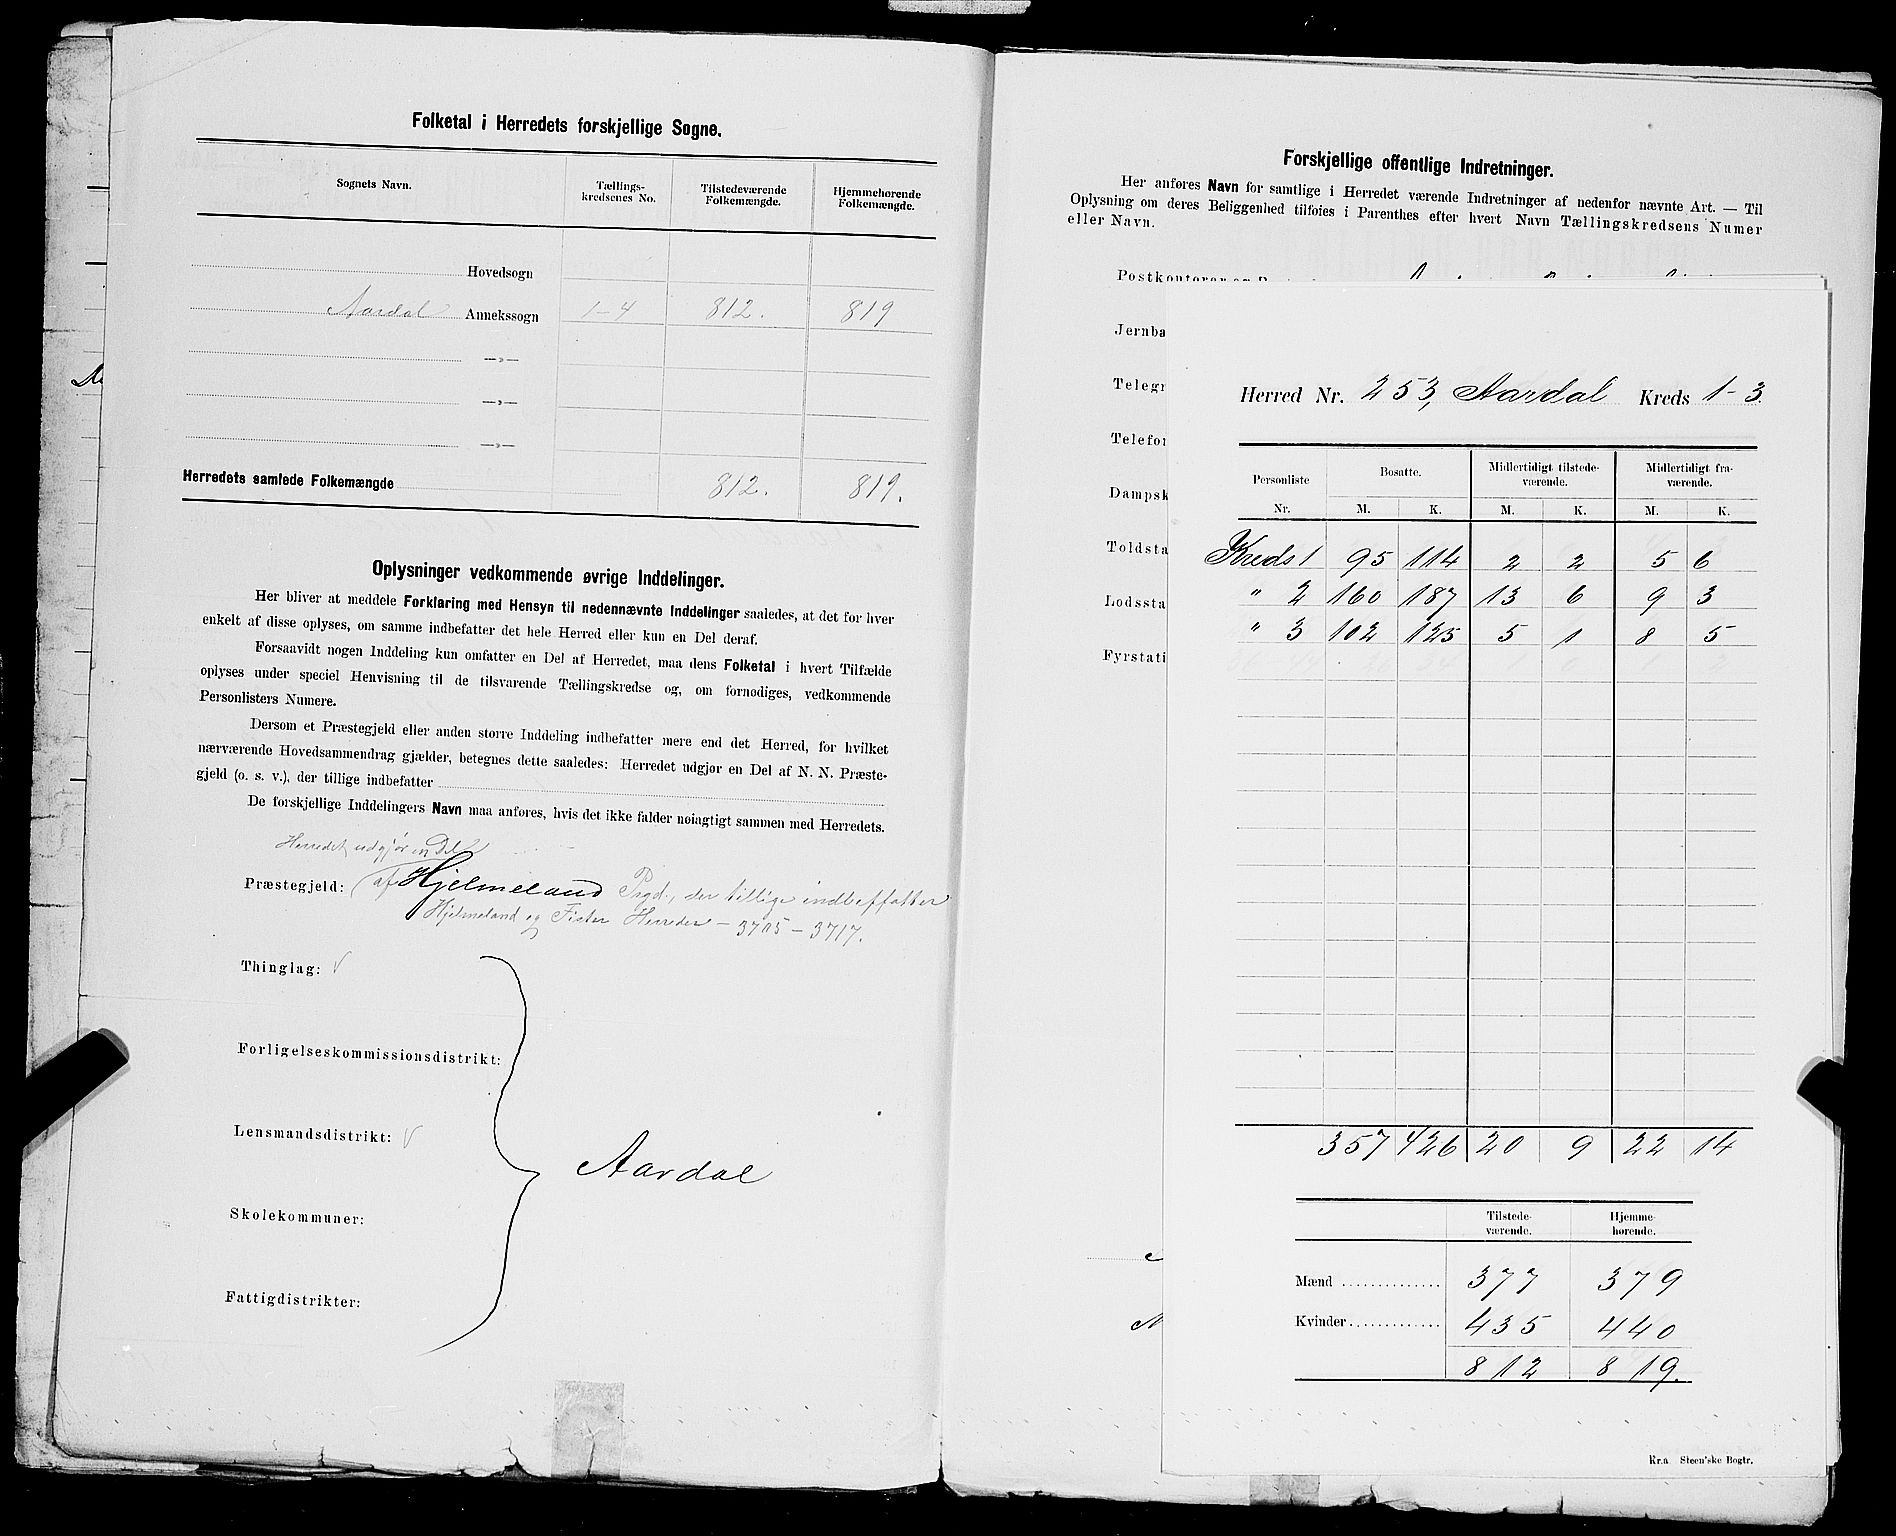 Folketal i Herredets forskjellige Sogne.
Sognets Navn. Tællings-kredsenes No. Tilstedeværende Folkemængde. Hjemmehørende Folkemængde.
Hovedsogn
Aardal Annekssogn 1-4 812. 819
—„—
—„—
—„—
Herredets samlede Folkemængde 812. 819.
Oplysninger vedkommende øvrige Inddelinger.
Her bliver at meddele Forklaring med Hensyn til nedennævnte Inddelinger saaledes, at det for hver
enkelt af disse oplyses, om samme indbefatter det hele Herred eller kun en Del deraf.
Forsaavidt nogen Inddeling kun omfatter en Del af Herredet, maa dens Folketal i hvert Tilfælde
oplyses under speciel Henvisning til de tilsvarende Tællingskredse og, om fornødiges, vedkommende
Personlisters Numere.
Dersom et Præstegjeld eller anden større Inddeling indbefatter mere end det Herred, for hvilket
nærværende Hovedsammendrag gjælder, betegnes dette saaledes: Herredet udgjør en Del af N. N. Præste-
gjeld (o. s. v.), der tillige indbefatter
De forskjellige Inddelingers Navn maa anføres, hvis det ikke falder nøiagtigt sammen med Herredets.
Herredet udgjør en Del
Præstegjeld: af Hjelmeland Prgd., der tillige indbefatter
Hjelmeland og Fister Herreder – 3705 – 3717.
Thinglag:
Forligelseskommissionsdistrikt:
Lensmandsdistrikt:
Aardal
Skolekommuner:
Fattigdistrikter:
Forskjellige offentlige Indretninger.
Her anføres Navn for samtlige i Herredet værende Indretninger af nedenfor nævnte Art. — Til
Oplysning om deres Beliggenhed tilføies i Parenthes efter hvert Navn Tællingskredsens Numer
eller Navn.
Postkontorer og
Jernba
Telegr
Telefon
Dampsk
Toldsta
Lodssta
Fyrstati
Herred Nr. 253, Aardal Kreds 1-3.
Personliste Bosatte. Midlertidigt tilstede-værende. Midlertidigt fra-værende.
Nr. M. K. M. K. M. K.
Kreds 1 95 114 2 2 5 6
" 2 160 187 13 6 9 3
" 3 102 125 5 1 8 5
357 426 20 9 22 14
Tilstede-værende. Hjemme-hørende.
Mænd 377 379
Kvinder 435 440
812 819.
Kr.a Steen'ske Bogtr.